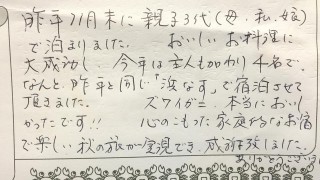 昨年11月末に親子3代(母、私、娘)
で泊まりました。 おいしいお料理に
大感動し、今年は主人も加わり4名で、
なんと、昨年と同じ「浜なす」で宿泊させて
頂きました。 ズワイガニ、本当においし
かったです!! 心のこもった家庭的なお宿
で楽しい秋の旅が実現でき、感謝致しました。
ありがとうござい